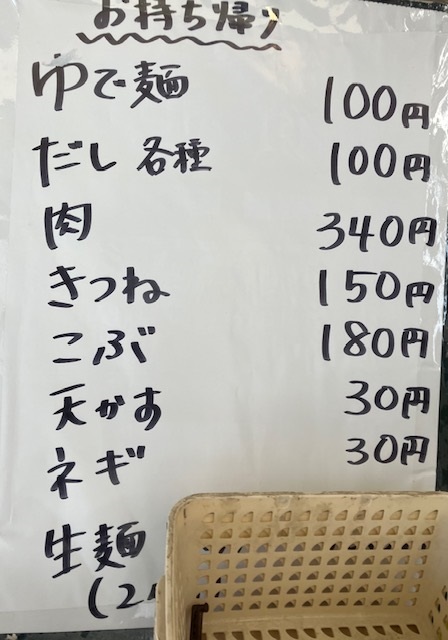 お持ち帰り
ゆで麺 100円
だし 各種 100円
肉 340円
きつね 150円
こぶ 180円
天かす 30円
ネギ 30円
生麺
(2